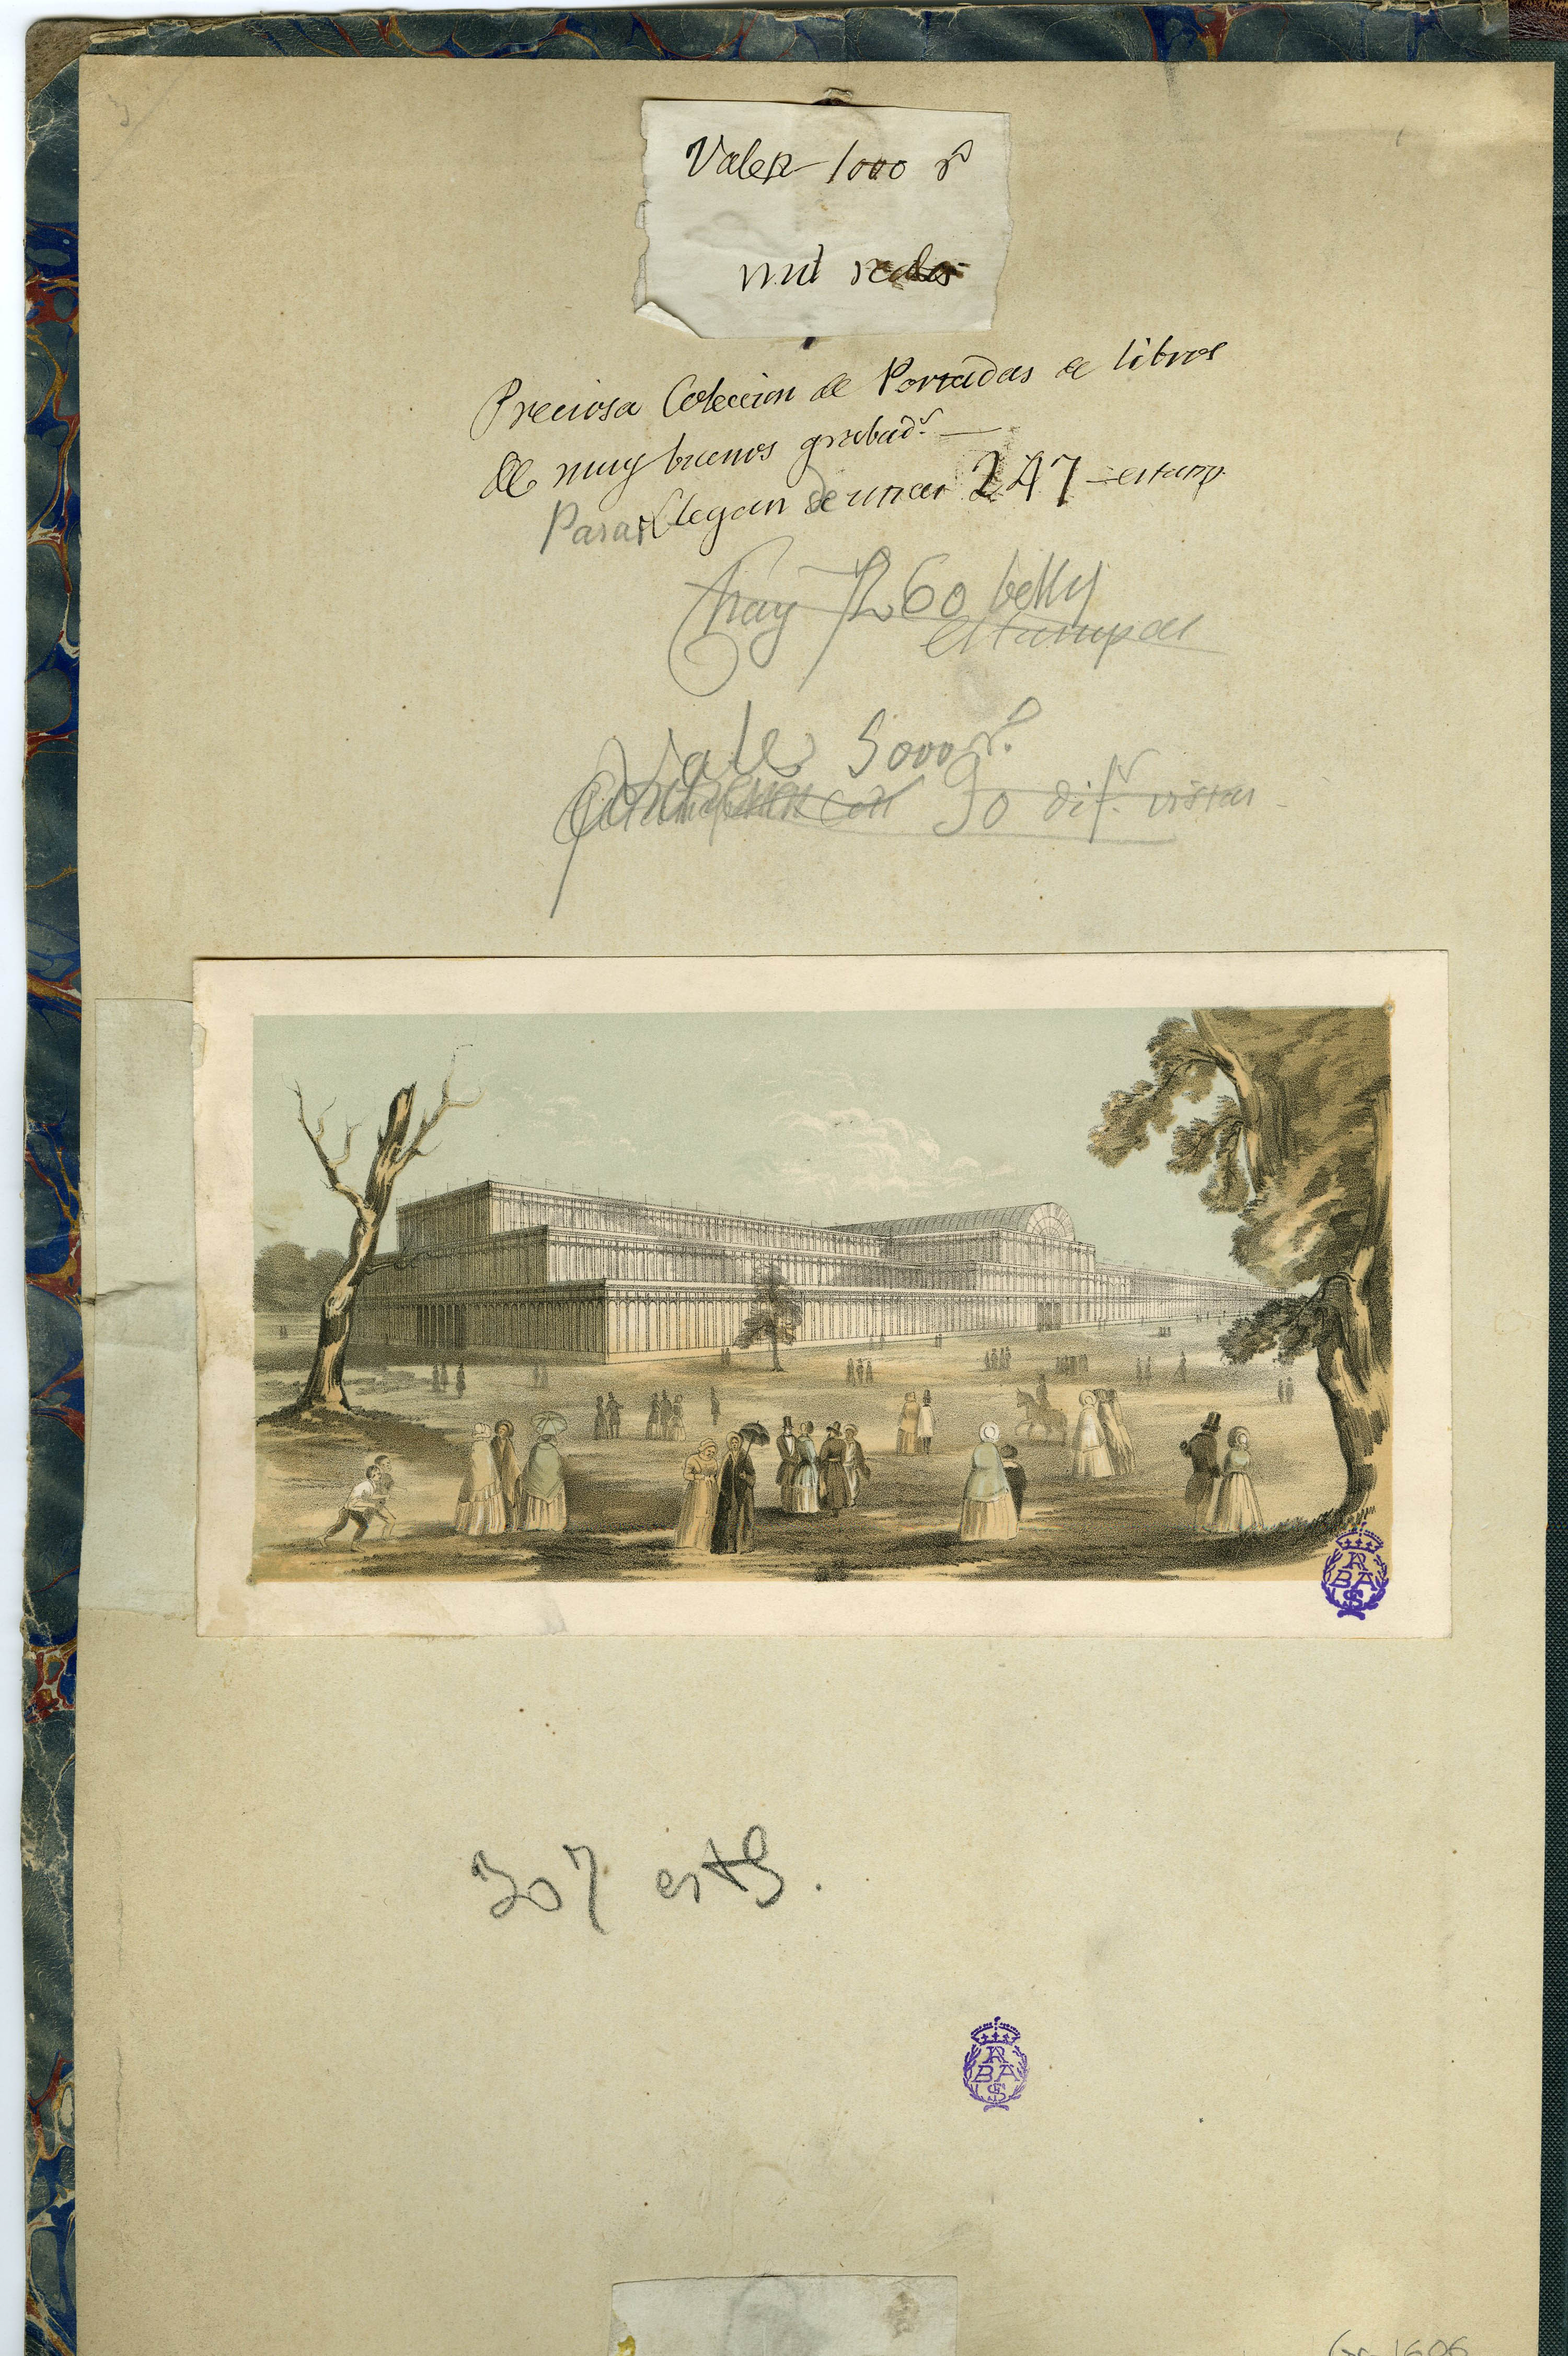 Valen 1000 rˢ
mil reales
Preciosa Coleccion de Portadas de libros
de muy buenos grabad.ˢ
Pasan Llegan de unas 247 estamp.
hay 260 bellas
estampas
Vale 5000 rˢ.
con 90 dif.ˢ vistas
307 est
R
BA
S
R
BA
S
Gr 1606